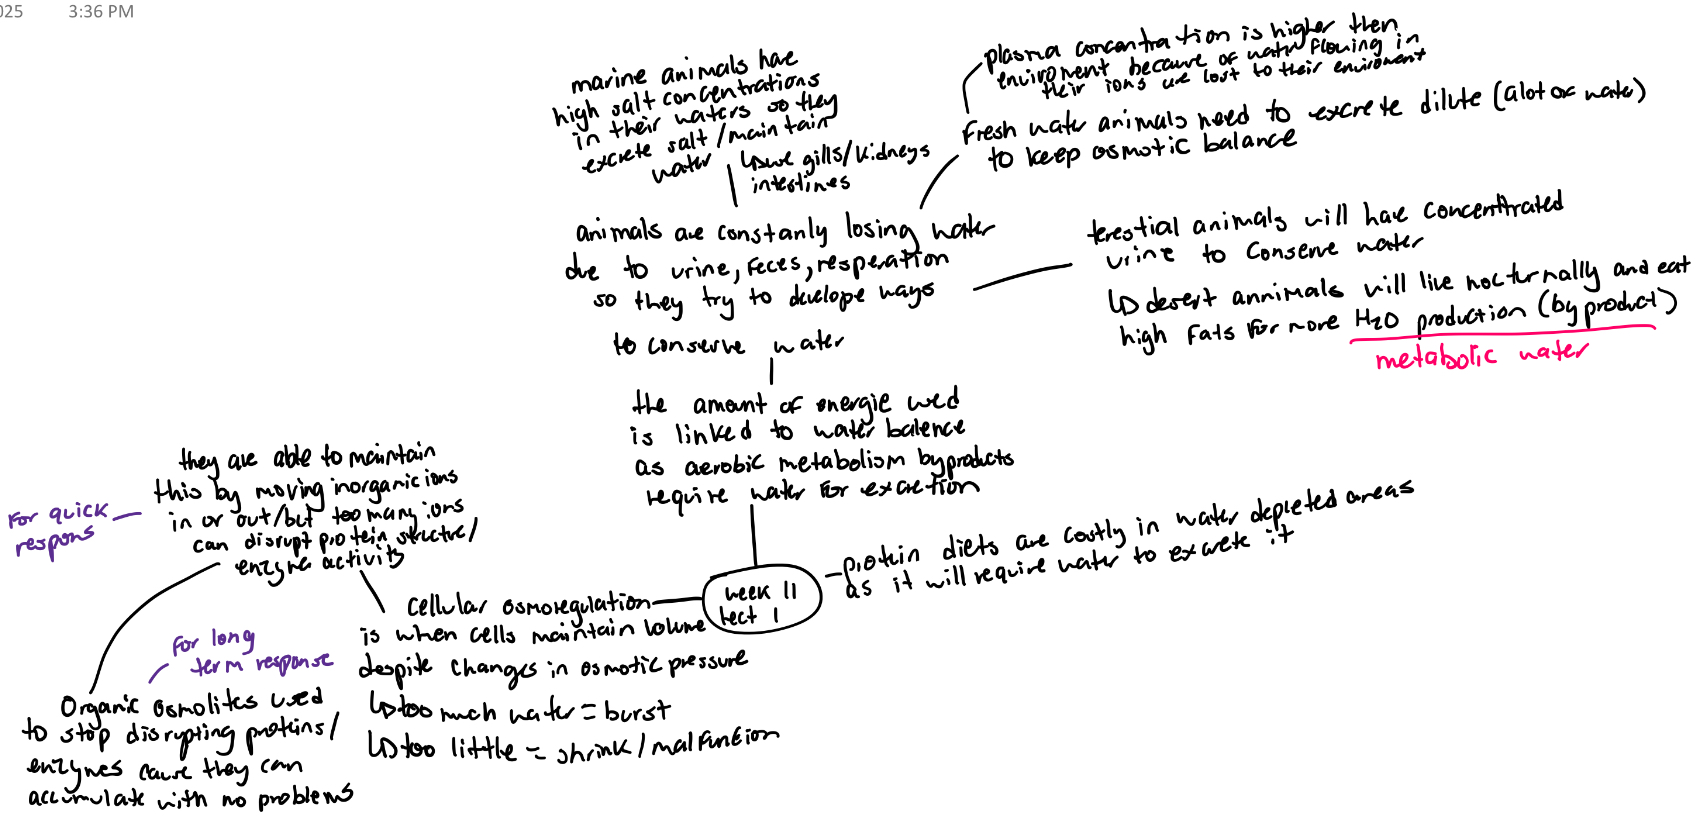 025 3:36 PM
marine animals have
high salt concentrations
in their waters so they
excrete salt/maintain
water
↳use gills/kidneys
intestines
plasma concentration is higher then
enviroment because of water flowing in
their ions are lost to their enviroment
Fresh water animals need to excrete dilute (alot of water)
to keep osmotic balance
animals are constanly losing water
due to urine, feces, resperation
so they try to develope ways
to conserve water
terestial animals will have concentrated
urine to conserve water
↳desert annimals will live nocturnally and eat
high fats for more H2O production (by product)
metabolic water
the amount of energie used
is linked to water balence
as aerobic metabolism byproducts
require water for excretion
they are able to maintain
this by moving inorganic ions
in or out/but too many ions
can disrupt protein structre/
enzyme activity
For quick
respons
protein diets are costly in water depleted areas
as it will require water to excrete it
week 11
lect 1
cellular osmoregulation
is when cells maintain volume
despite changes in osmotic pressure
↳too much water = burst
↳too little = shrink/malfuntion
For long
term response
Organic osmolites used
to stop disrypting proteins/
enzymes cause they can
accumulate with no problems